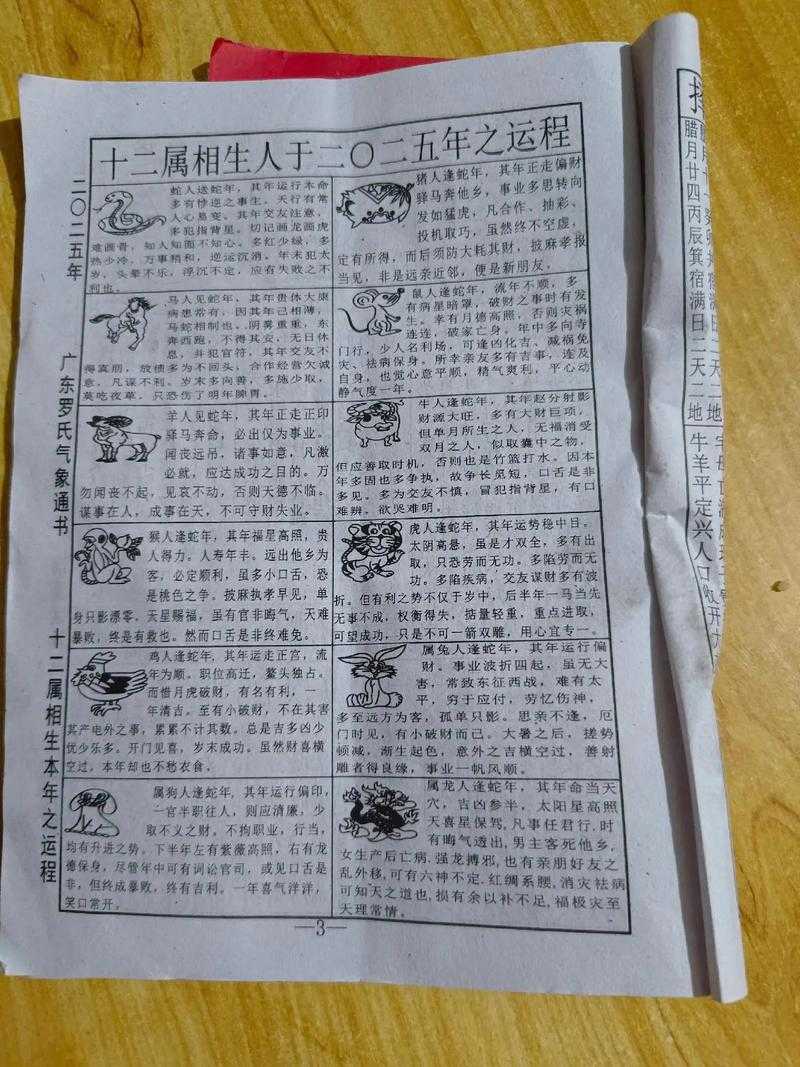 十二属相生人于二〇二五年之运程
二〇二五年
广东罗氏气象通书
十二属相生本年之运程
蛇人送蛇年，其年运行本命
多有悖逆之事生。天行有常
人心易变。其年交友注意，
多犯指背星。切记画龙画虎
难画骨，知人知面不知心。多红少绿，多
热少冷，万事精和，逆运沉消。年末犯太
岁，头晕不乐，浮沉不定，应有失败之不
利也。
猪人逢蛇年，其年正走偏财
驿马奔他乡，事业多思转向
发如猛虎，凡合作、抽彩、
投机取巧，虽然终不空虚，
定有所得，而后须防大耗其财，披麻孝报
当见，非是远亲近邻，便是新朋友。
马人见蛇年，其年贵体大康
病患常有，因其年己相薄，
马蛇相制也。阴雾重重，东
奔西跑，不得其安，无日休
息，并犯官符，其年交友不
得真朋，放债多为不回头，合作经营欠诚
意，凡谋不利。岁末多向善，多施少取，
莫吃夜草，只恐伤了明年脾胃。
鼠人逢蛇年，流年不顺，多
有病星暗罩，破财之事时有发
生。幸有月德高照，否则灾祸
连连，破家亡身。年中多向寺
门行，少人名利场，可逢凶化吉、减祸免
灾、祛病保身。所幸亲友多有吉事，连及
自身，也觉心意平顺，精气爽利，平心动
静气度一年。
羊人见蛇年，其年正走正印
驿马奔命，必出仅为事业。
闻丧远吊，诸事如意，凡激
必就，应达成功之目的。万
勿闻丧不起，见哀不动，否则天德不临。
谋事在人，成事在天，不可守财失业。
牛人逢蛇年，其年赵分射影
财源大旺，多有大财巨项，
但单月所生之人，无福消受
双月之人，似取囊中之物，
但应善取时机，否则也是竹篮打水。因本
年多固也多争执，故争长觅短，口舌是非
多见。多为交友不慎，冒犯指背星，有口
难辨。欲哭难明。
猴人逢蛇年，其年福星高照，贵
人得力。人寿年丰。远出他乡为
客，必定顺利，虽多小口舌，恐
是桃色之争。披麻执孝早见，单
身只影漂零。天星赐福，虽有官非晦气，天难
暴败，终是有救也。然而口舌是非终难免。
虎人逢蛇年，其年运势稳中日。
太阴高悬，虽是才双全，多有出
取，只恐劳而无功。多陷劳而无
功。多陷疾病，交友谋财多有波
折。但有利之势不仅于岁中，后半年一马当先
无事不成，权衡得失，掂量轻重，重点进取，
可望成功，只是不可一箭双雕，用心宜专一。
鸡人逢蛇年，其年运走正宫，流
年为顺。职位高迁，鳌头独占。
而惜月虎破财，有名有利，一
年清吉。至有小破财，不在其害
其产电外之事，累累不计其数。总是吉多凶少
优少乐多。开门见喜，岁末成功。虽然财喜横
空过，本年却也不愁衣食。
属兔人逢蛇年，其年运行偏
财。事业波折四起，虽无大
害，常致东征西战，难有太
平，穷于应付，劳忆伤神，
多至远方为客，孤单只影。思亲不逢，厄
门时见，有小破财而己。大暑之后，搓势
顿减，渐生起色，意外之吉横空过，善射
雕者得良缘，事业一帆风顺。
属狗人逢蛇年，其年运行偏印，
一官半职往人，则应清廉，少
取不义之财。不拘职业，行当，
均有升进之势。下半年左有紫薇高照，右有龙
德保身，尽管年中可有词讼官司，或见口舌是
非，但终成暴败，终有吉利。一年喜气洋洋，
笑口常开。
属龙人逢蛇年，其年命当天
穴，吉凶参半，太阳星高照
天喜星保驾，凡事任君行，时
有晦气透出，男主客死他乡，
女生产后亡病。强龙搏邪，也有亲朋好友之
乱外移，可有六神不定，红绸系腰，消灾祛病
可知天之道也，损有余以补不足，福极灾至
天理常情。
—3—
腊月廿四丙辰箕宿满日二天二地
牛羊平定兴人口收